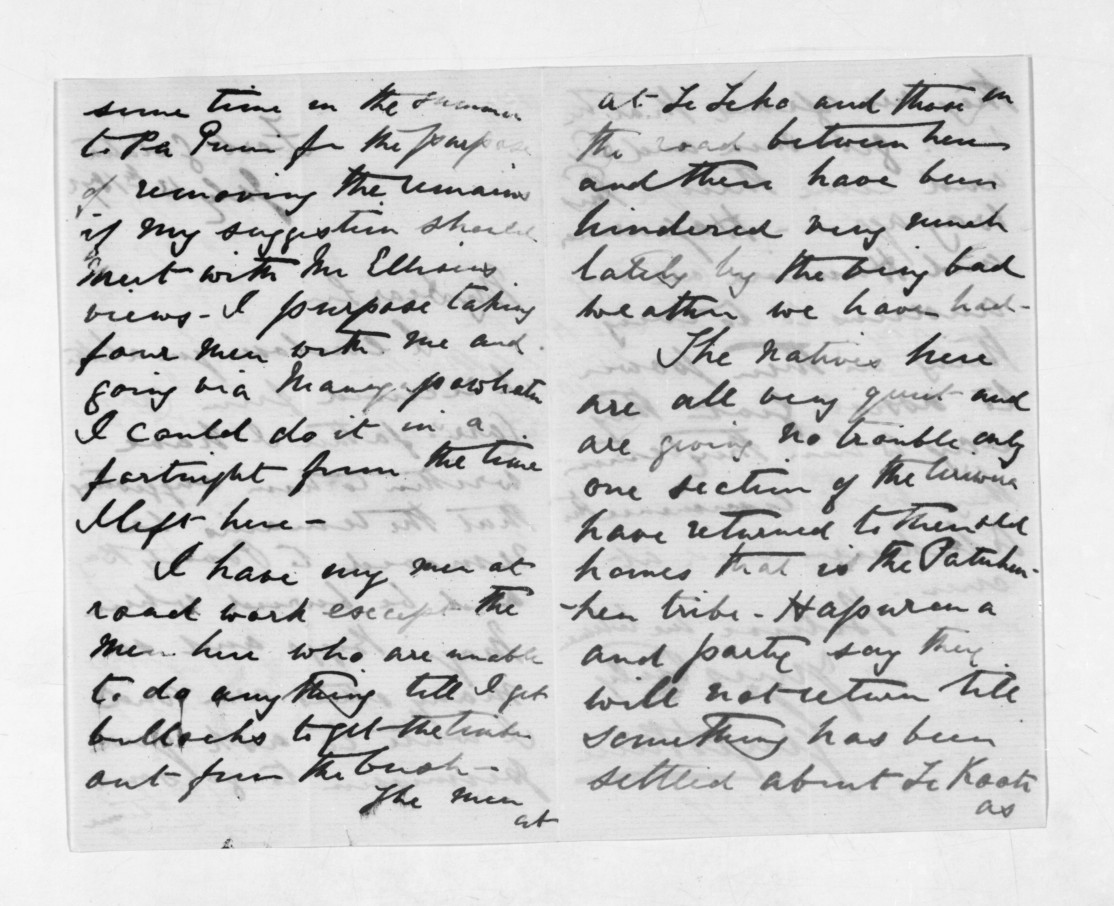 some time in the summer
to Pa Puni for the purpose
of removing the remains
if my suggestion should
meet with Mr Ellison's
views - I purpose taking
four men with me and
going via Mangapowhatu
I could do it in a
fortnight from the time
I left here -
I have my men at
road work except the
men here who are unable
to do anything till I get
bullocks to get the timber
out from the bush -
The men
at
at Te Teko and those on
the road between here
and there have been
hindered very much
lately by the very bad
weather we have had -
The natives here
are all very quiet and
are giving no trouble only
one section of the Uriwera
have returned to their old
homes that is the Patuheu-
-heu tribe - Hapurona
and party say they
will not return till
something has been
settled about Te Kooti
as